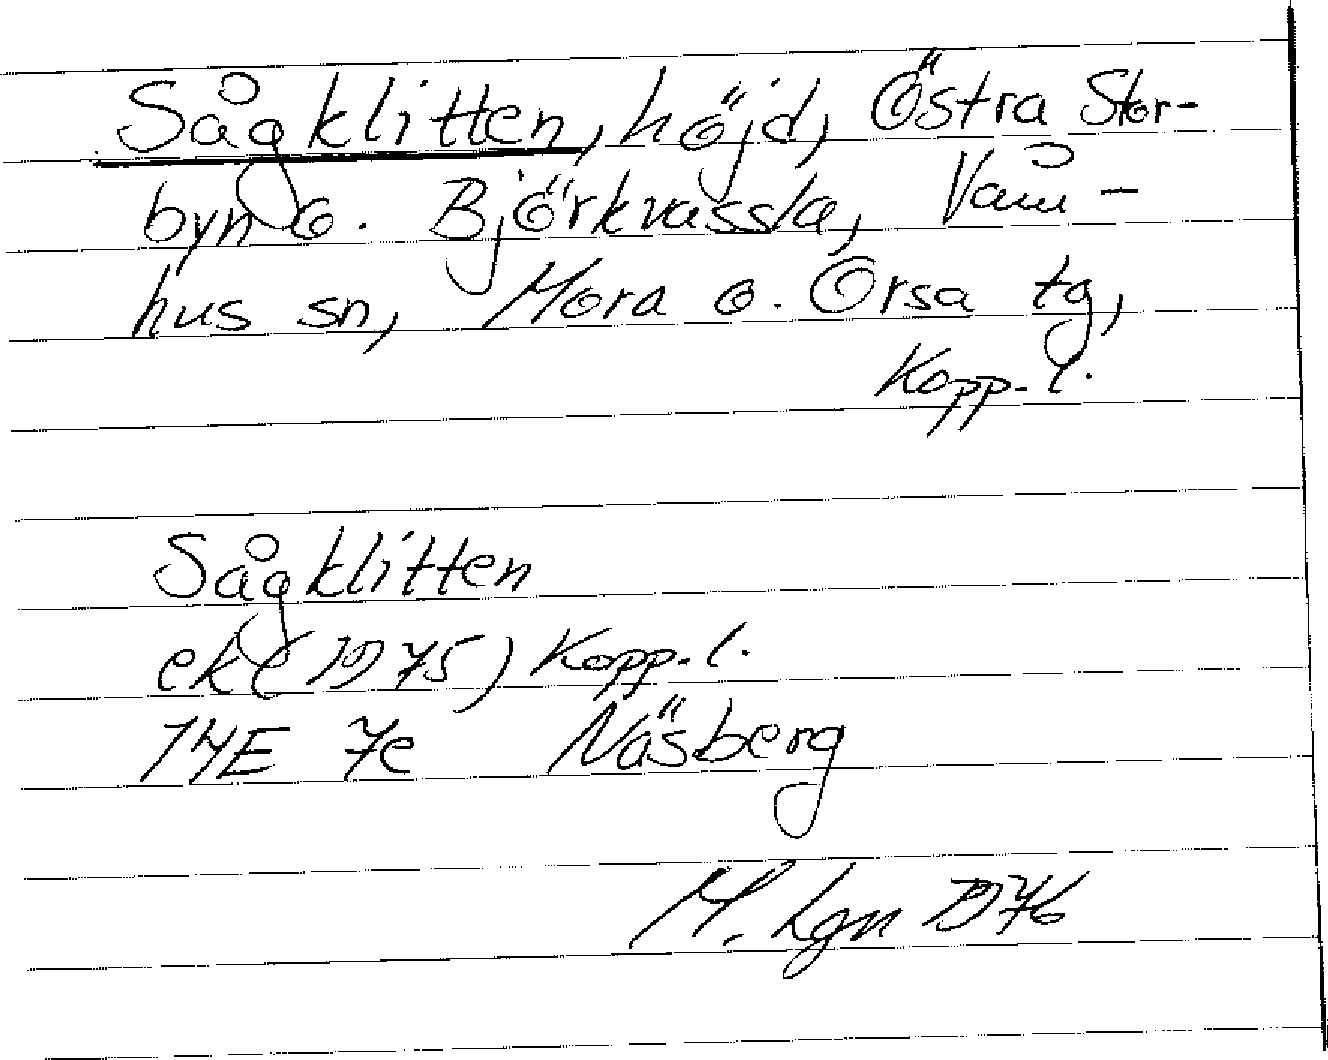 Sågklitten, höjd, Östra Stor-
byn o. Björkvassla, Våm-
hus sn, Mora o. Orsa tg,
Kopp. l.
Sågklitten
ek (1975) Kopp. l.
14E 7e Näsberg
M. Lgn 1976